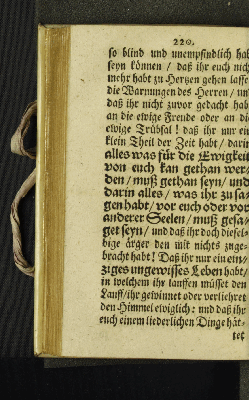 220.
so blind und unempfindlich hab
seyn können / daß ihr euch nich
mehr habt zu Hertzen gehen lasse
die Warnungen des Herren / un
daß ihr nicht zuvor gedacht hab
an die ewige Freude oder an di
ewige Trübsal! daß ihr nur ein
klein Theil der Zeit habt / darin
alles was für die Ewigkeit
von euch kan gethan wer-
den / muß gethan seyn / und
darin alles / was ihr zu sa-
gen habt / vor euch oder vor
anderer Seelen / muß gesa-
get seyn / und daß ihr doch diesel-
bige ärger den mit nichts zuge-
bracht habt! Daß ihr nur ein ein-
ziges ungewisses Leben habt /
in welchem ihr lauffen müsset den
Lauff / ihr gewinnet oder verliehret
den Himmel ewiglich: und daß ihr
euch einem liederlichen Dinge hät-
tet